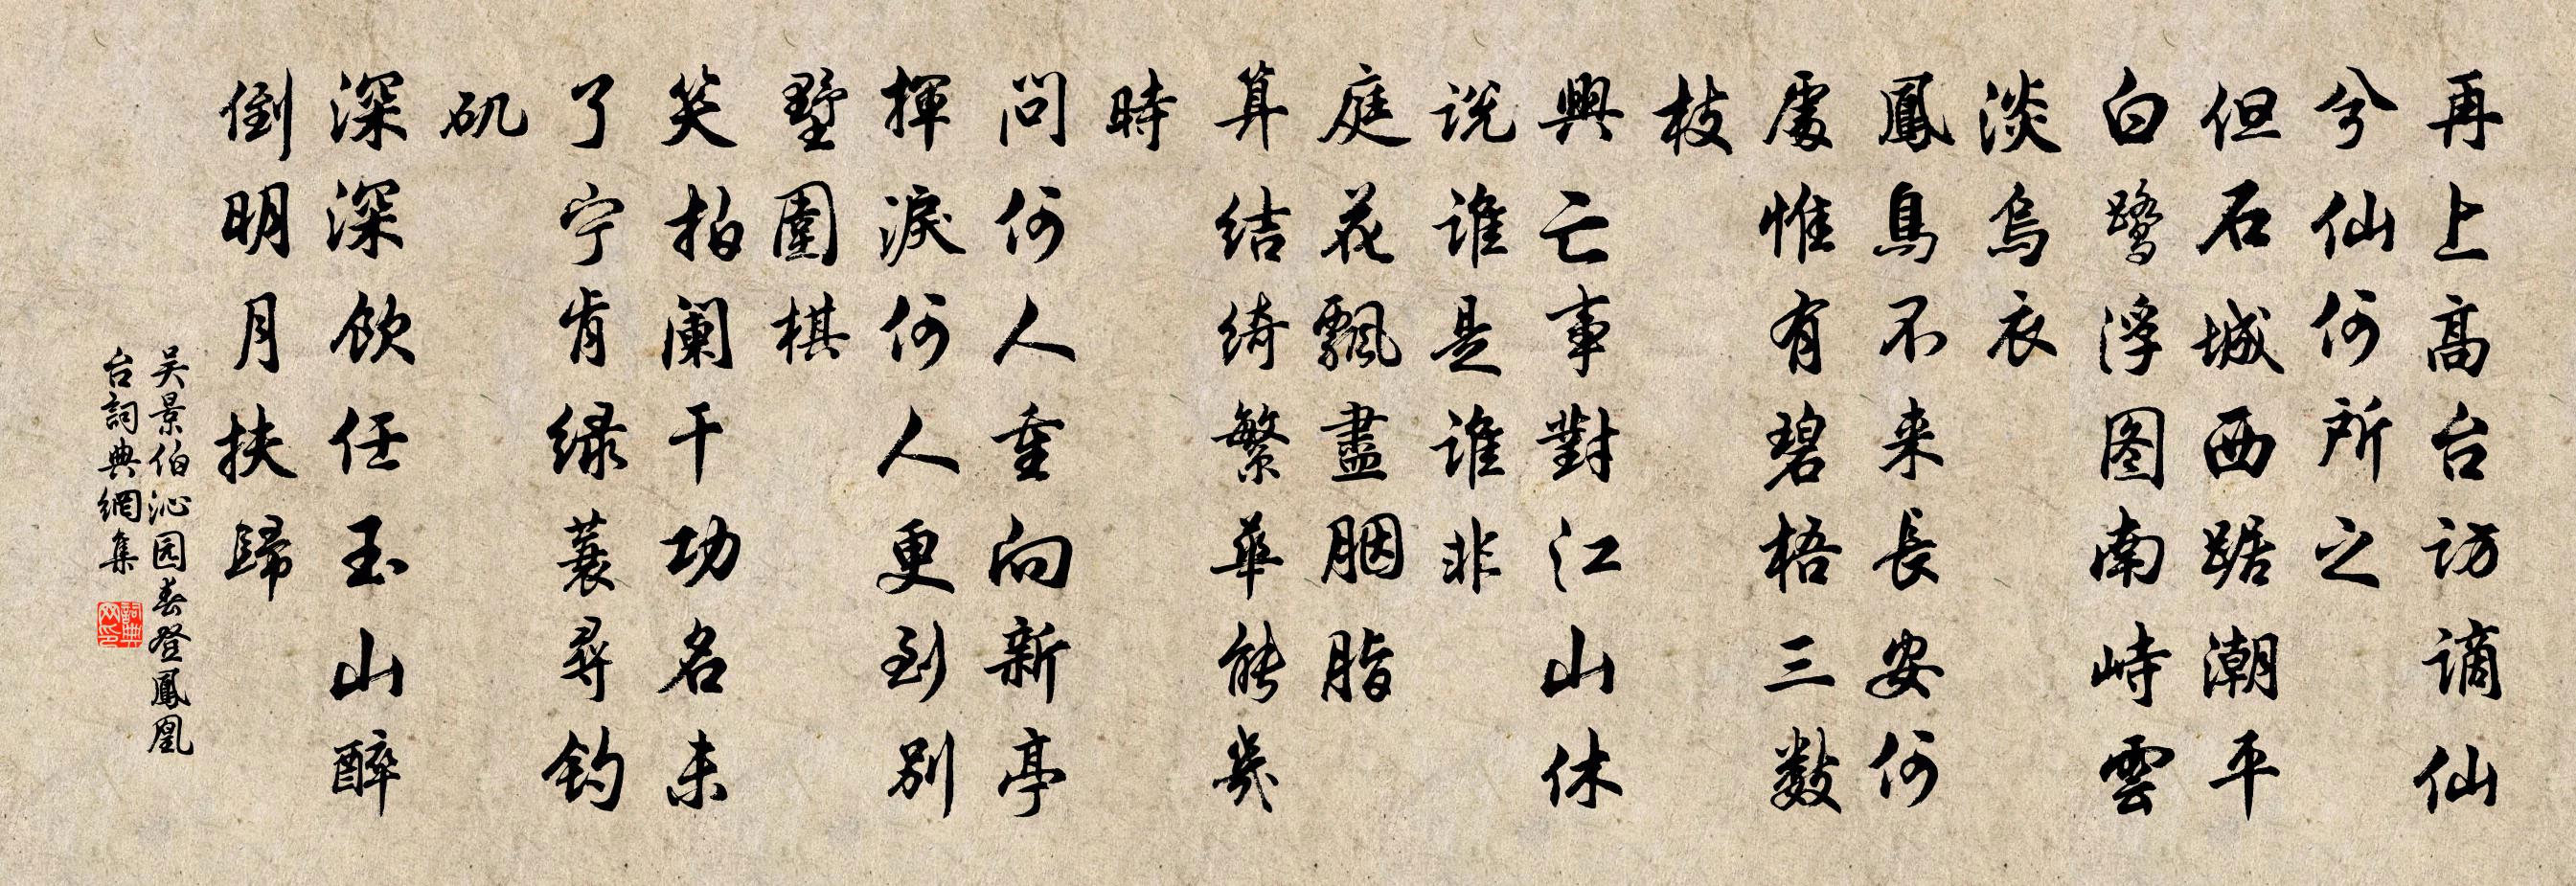 再上高台访谪仙
兮仙何所之
但石城西踞潮平
白鹭浮图南峙雲
淡烏衣
鳳鳥不来長安何
處惟有碧梧三数
枝
興亡事對江山休
说谁是谁非
庭花飄盡胭脂
算结绮繁華能幾
時
问何人重向新亭
揮淚何人更到别
墅圍棋
笑拍阑干功名未
了宁肯绿蓑尋钓
矶
深深饮任玉山醉
倒明月扶歸
吴景伯沁园春登鳳凰
台詞典網集
詞典
网印